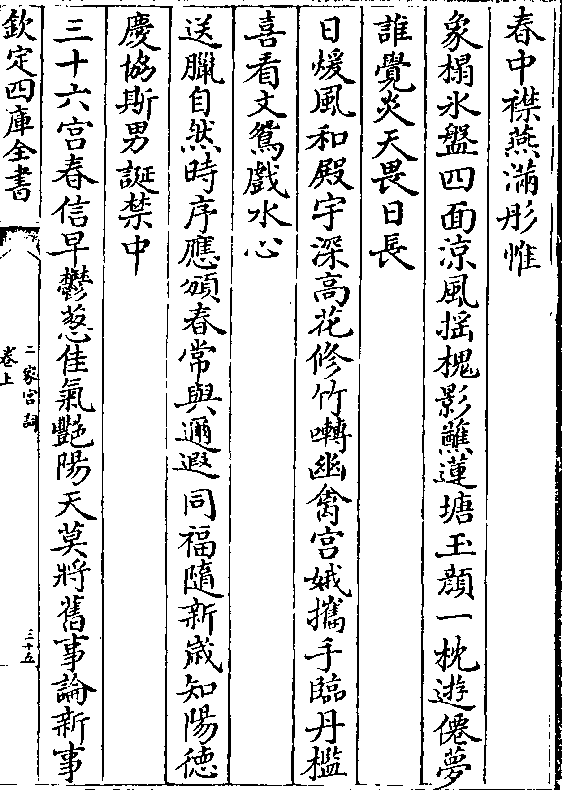 春中襟燕滿彤帷
象榻氷盤四面涼風揺槐影蘸蓮塘玉顔一枕遊僊夢
誰覺炎天畏日長
日煖風和殿宇深高花修竹囀幽禽宫娥攜手臨丹檻
喜看文鴛戲水心
送臘自然時序應頒春常與邇遐同福隨新歳知陽德
慶協斯男誕禁中
三十六宫春信早鬱葱佳氣艷陽天莫將舊事論新事
欽定四庫全書
二家宫詞
卷上
三十五